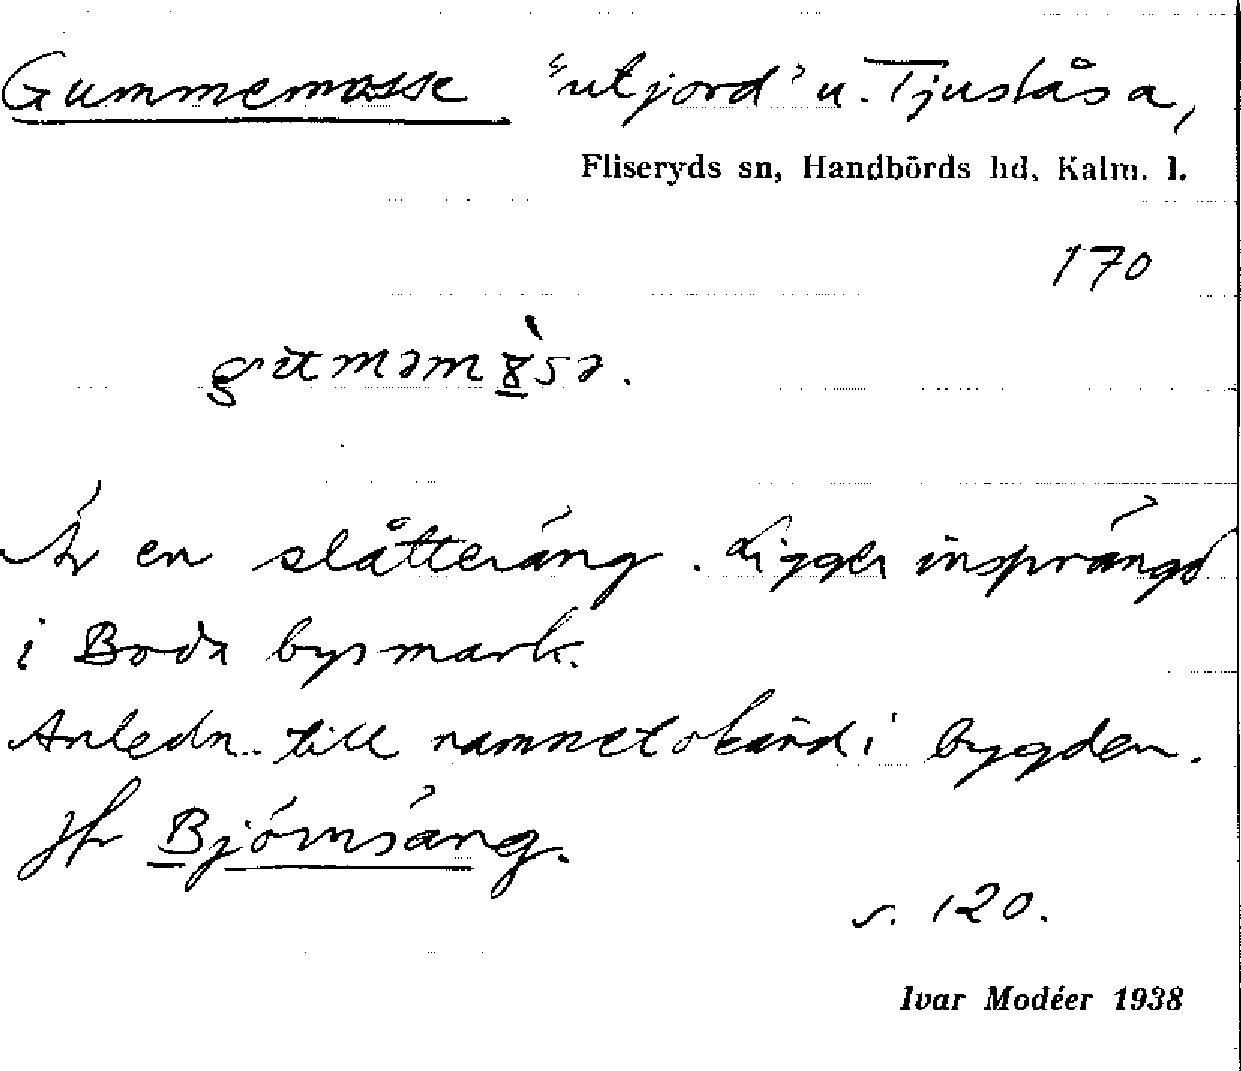 Gummemosse "utjord" u. Tjuståsa,
Fliseryds sn, Handbörds hd, Kalm. l.
170
Är en slåtteräng. Ligger insprängd
i Boda bys mark.
Anledn. till namnet okänd i bygden.
Jfr Björnsäng.
s. 120.
Ivar Modéer 1938